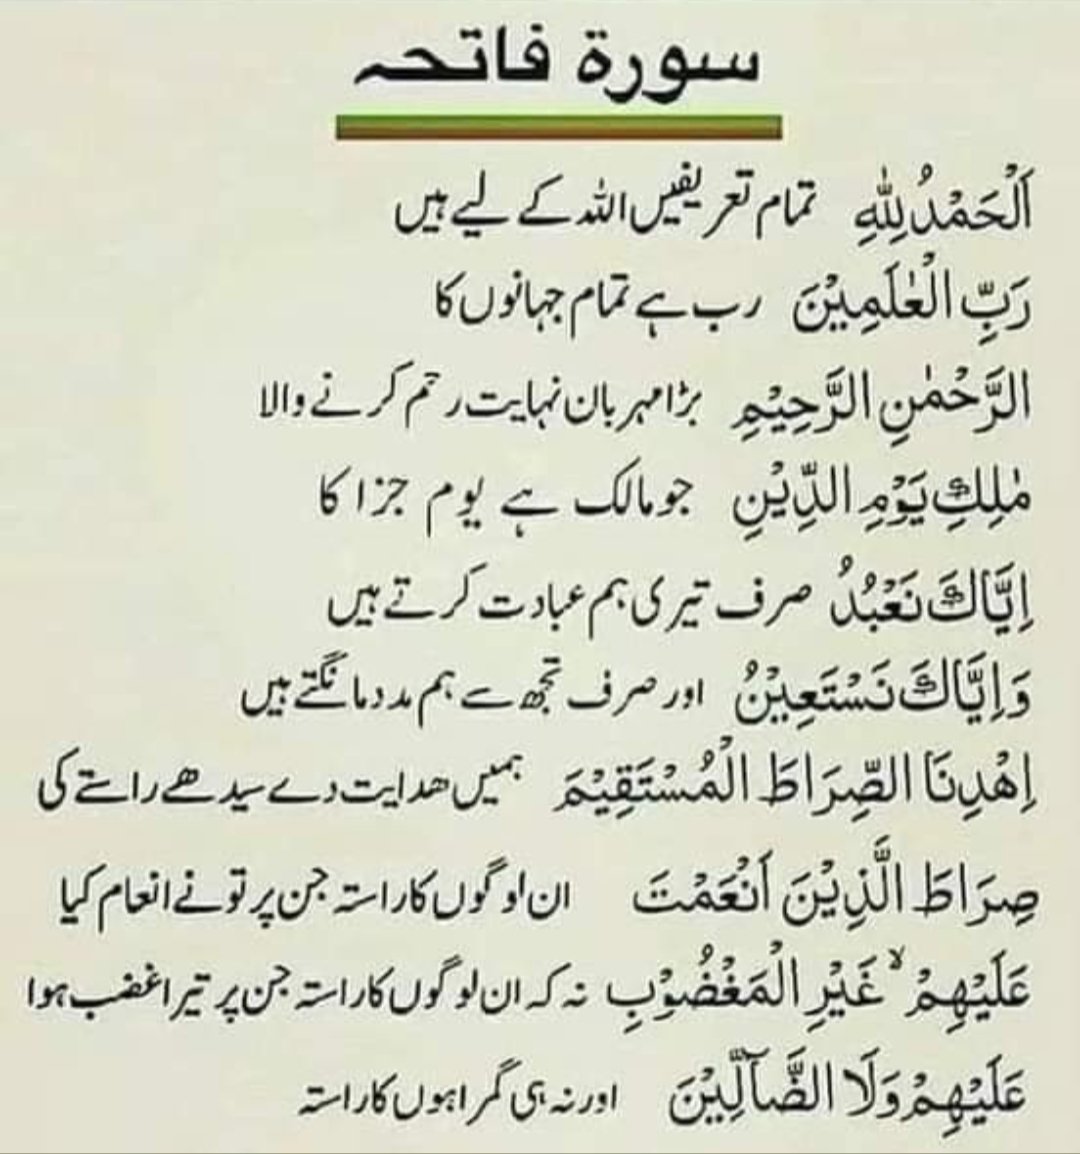 سورۃ فاتحہ
اَلْحَمْدُ لِلّٰهِ تمام تعریفیں اللہ کے لیے ہیں
رَبِّ الْعٰلَمِیْنَ رب ہے تمام جہانوں کا
الرَّحْمٰنِ الرَّحِیْمِ بڑا مہربان نہایت رحم کرنے والا
مٰلِكِ یَوْمِ الدِّیْنِ جو مالک ہے یوم جزا کا
اِیَّاكَ نَعْبُدُ صرف تیری ہم عبادت کرتے ہیں
وَاِیَّاكَ نَسْتَعِیْنُ اور صرف تجھ سے ہم مدد مانگتے ہیں
اِهْدِنَا الصِّرَاطَ الْمُسْتَقِیْمَ ہمیں ھدایت دے سیدھے راستے کی
صِرَاطَ الَّذِیْنَ اَنْعَمْتَ ان لوگوں کا راستہ جن پر تو نے انعام کیا
عَلَیْهِمْ ۙ غَیْرِ الْمَغْضُوْبِ نہ کہ ان لوگوں کا راستہ جن پر تیرا غضب ہوا
عَلَیْهِمْ وَلَا الضَّآلِّیْنَ اور نہ ہی گمراہوں کا راستہ